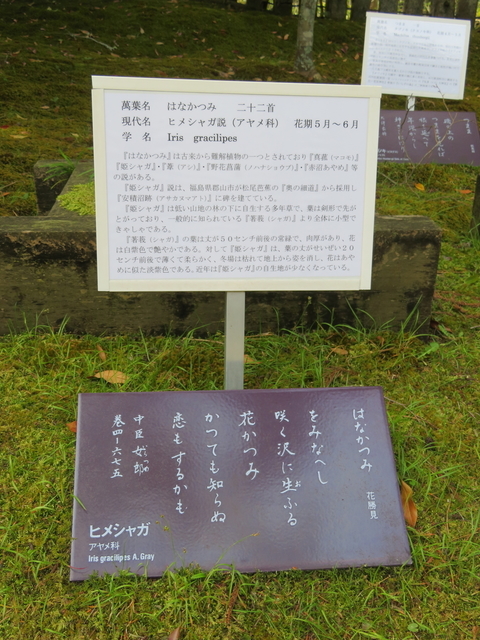 萬葉名　はなかつみ　二十二首
現代名　ヒメシャガ説（アヤメ科）　花期５月～６月
学　名　Iris gracilipes
『はなかつみ』は古来から難解植物の一つとされており『真菰（マコモ）』
『姫シャガ』・『葦（アシ）』・『野花菖蒲（ノハナショウブ）』・『赤沼あやめ』等
の説がある。
『姫シャガ』説は、福島県郡山市が松尾芭蕉の『奥の細道』から採用し
『安積沼跡（アサカヌマアト）』に碑を建てている。
『姫シャガ』は低い山地の林の下に自生する多年草で、葉は剣形で先が
とがっており、一般的に知られている『著莪（シャガ）』より全体に小型で
きゃしゃである。
『著莪（シャガ）』の葉は丈が５０センチ前後の常緑で、肉厚があり、花
は白紫色で艶やかである。対して『姫シャガ』は、葉の丈がせいぜい２０
センチ前後で薄くて柔らかく、冬場は枯れて地上から姿を消し、花はあや
めに似た淡紫色である。近年は『姫シャガ』の自生地が少なくなっている。
はなかつみ　花勝見
をみなへし
咲く沢に生ふる
花かつみ
かつても知らぬ
恋もするかも
中臣女郎
巻四－六七五
ヒメシャガ
アヤメ科
Iris gracilipes A. Gray